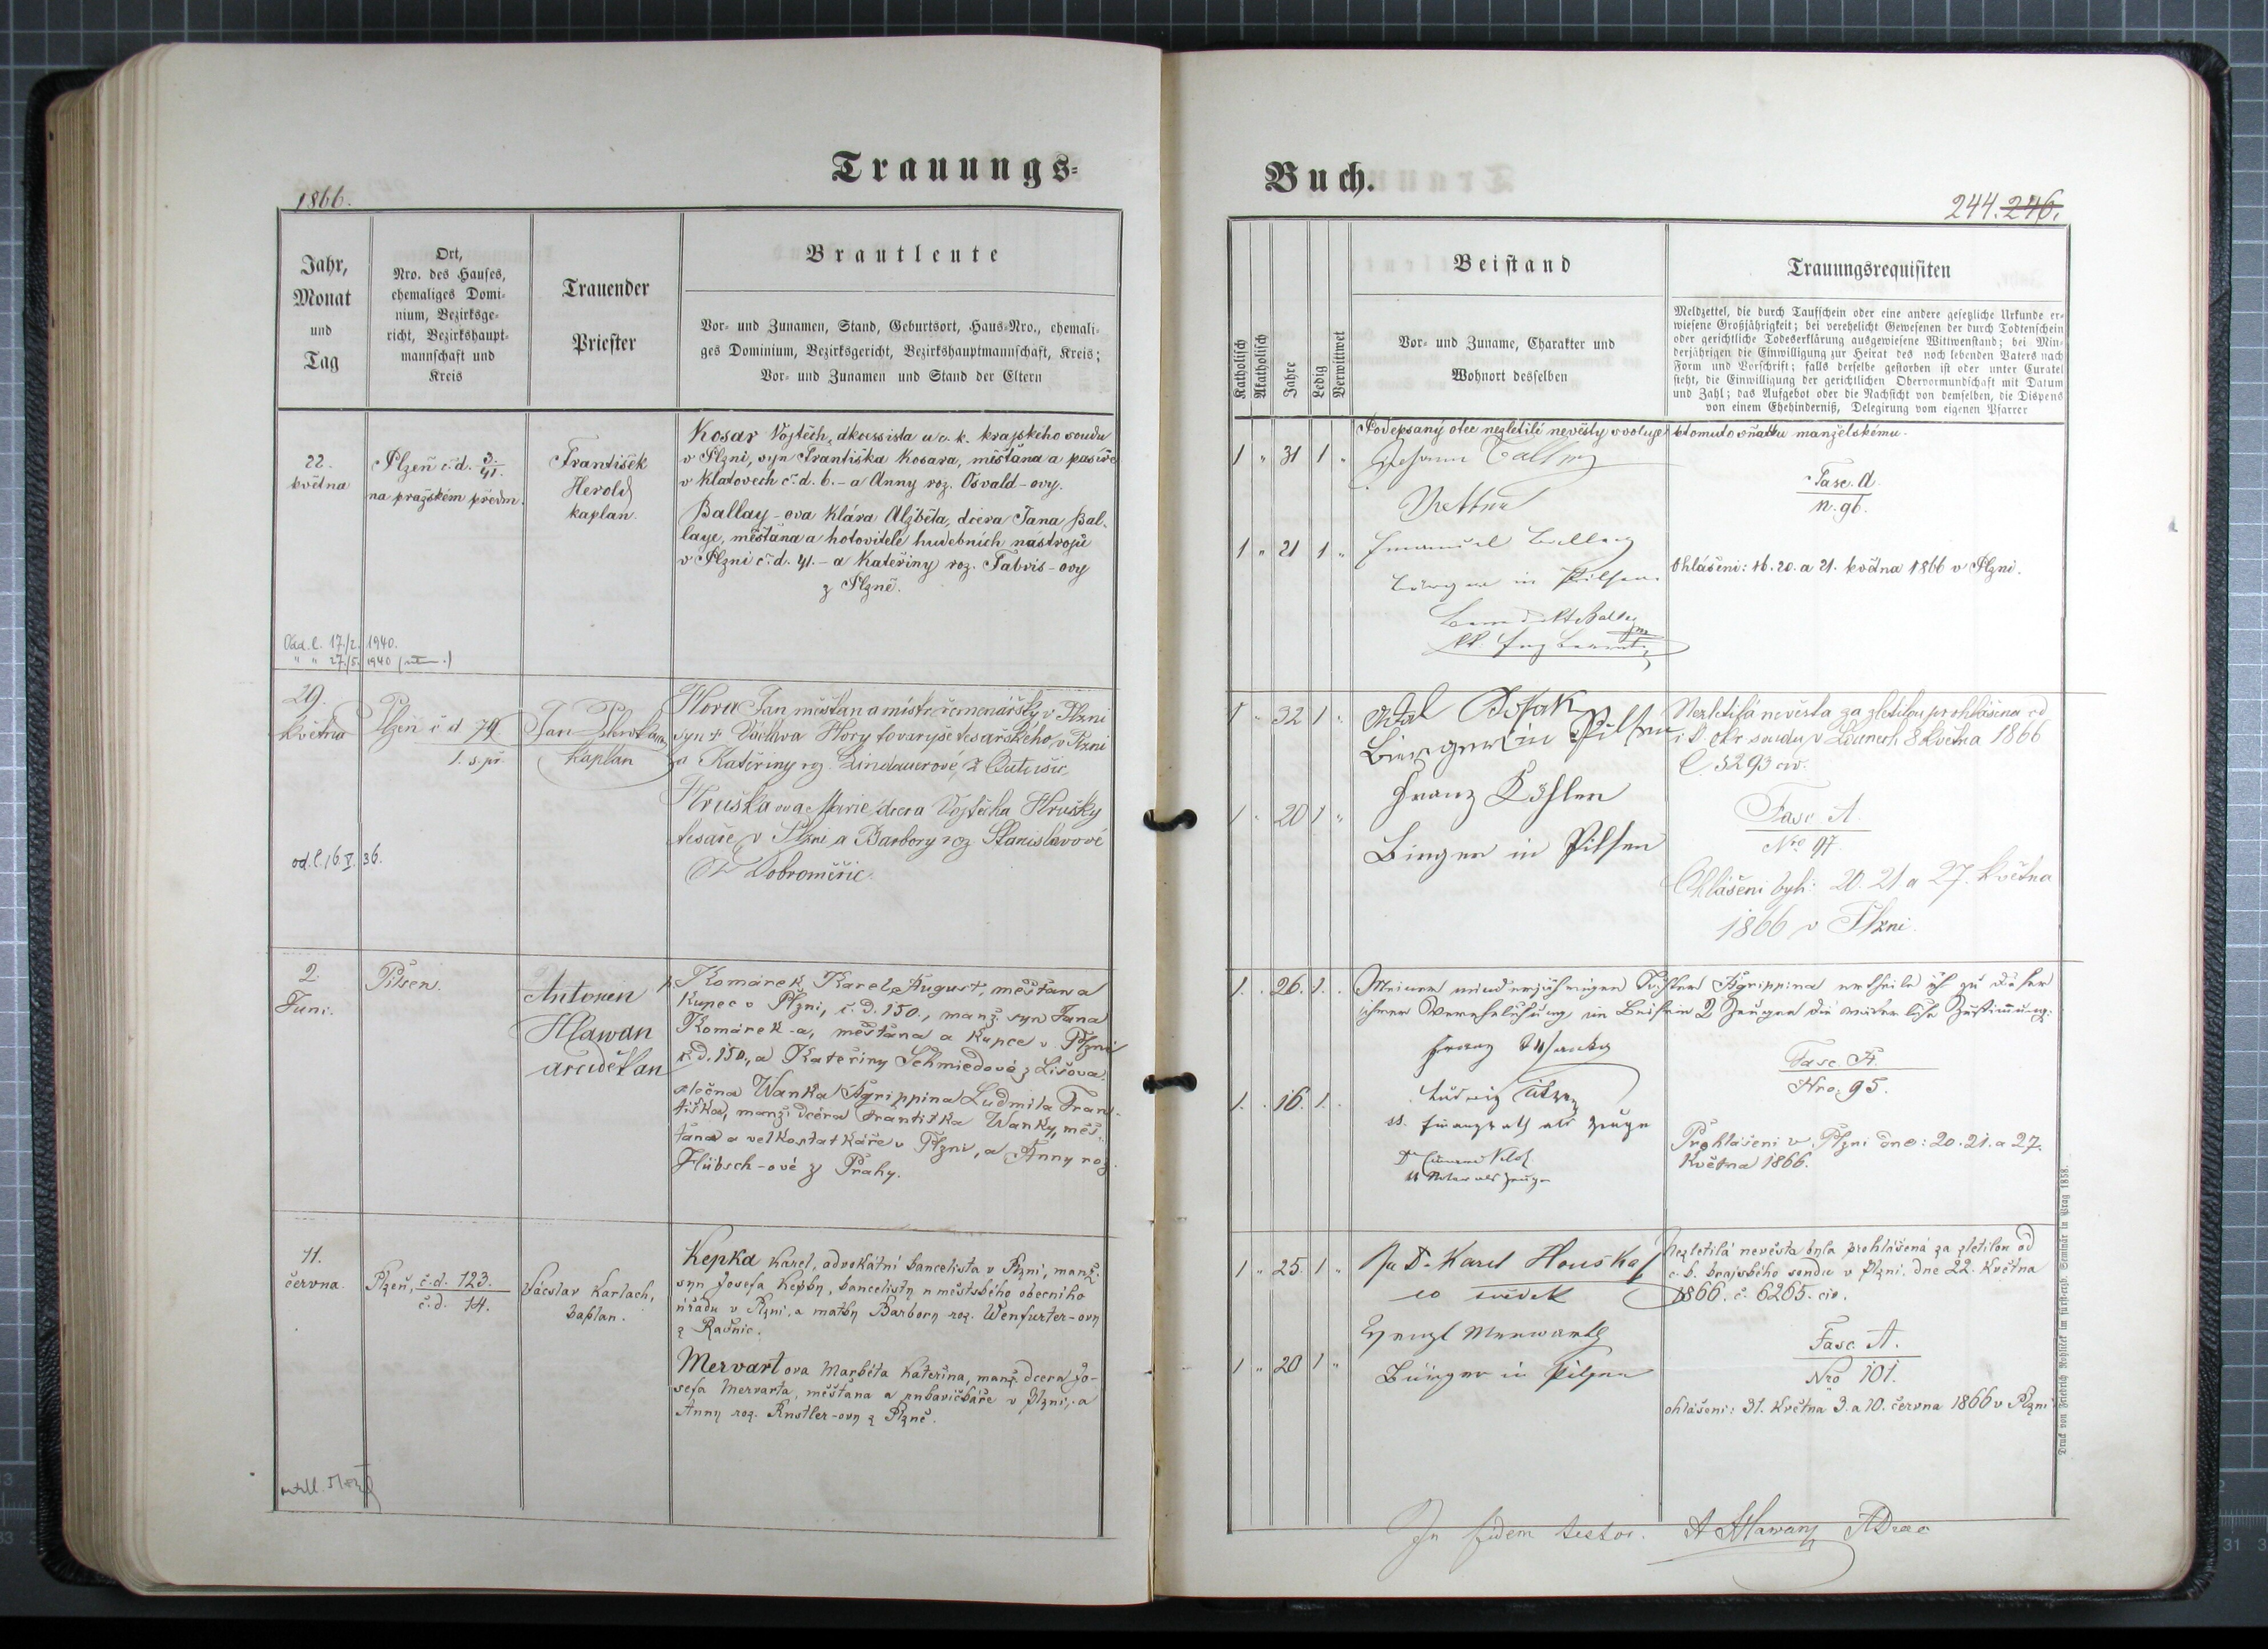 Trauungs-
Buch.
1866.
244. 246.
Jahr,
Monat
und
Tag
Ort,
Nro. des Hauses,
ehemaliges Domi-
nium, Bezirksge-
richt, Bezirkshaupt-
mannschaft und
Kreis
Trauender
Priester
Brautleute
Vor- und Zunamen, Stand, Geburtsort, Haus-Nro., ehemali-
ges Dominium, Bezirksgericht, Bezirkshauptmannschaft, Kreis;
Vor- und Zunamen und Stand der Eltern
Katholisch
Akatholisch
Jahre
Ledig
Verwittwet
Beistand
Vor- und Zuname, Charakter und
Wohnort desselben
Trauungsrequisiten
Meldzettel, die durch Taufschein oder eine andere gesetzliche Urkunde er-
wiesene Großjährigkeit; bei verehelicht Gewesenen der durch Todtenschein
oder gerichtliche Todeserklärung ausgewiesene Wittwenstand; bei Min-
derjährigen die Einwilligung zur Heirat des noch lebenden Vaters nach
Form und Vorschrift; falls derselbe gestorben ist oder unter Curatel
steht, die Einwilligung der gerichtlichen Obervormundschaft mit Datum
und Zahl; das Aufgebot oder die Nachsicht von demselben, die Dispens
von einem Ehehinderniß, Delegirung vom eigenen Pfarrer
22.
května
Plzeň č. d. 3./41.
na pražském předm.
František
Herold
kaplan.
Kosar Vojtěch, akcessista u c. k. krajského soudu
v Plzni, syn Františka Kosara, měštana a pasíře
v Klatovech č. d. 6. – a Anny roz. Osvald-ovy.
Ballay-ova Klára Alžběta, dcera Jana Bal-
laye, měštana a hotovitele hudebních nástrojů
v Plzni č. d. 41. – a Kateřiny roz. Fabris-ovy
z Plzně.
Odd. l. 17/2. 1940.
" " 27./5. 1940
1 " 31 1 "
1 " 21 1 "
Podepsaný otec nezletilé nevěsty svoluje k tomuto sňatku manželskému.
Johann Ballay
Emanuel Ballay
Bürger in Pilsen.
Fasc. A.
N. 96.
Ohlášeni: 16. 20. a 21. května 1866 v Plzni.
29.
Května
Plzeň č d 79
1. s. př.
Jan
Kaplan
Hora Jan, měštan a mistr řemenářský v Plzni
syn † Václava Hory tovaryše tesařského v Plzni
a Kateřiny roz. Lindauerové, z
Hruška ova Marie, dcera Vojtěcha Hrušky
tesaře v Plzni a Barbory roz. Stanislavové
z Dobroměřic.
od. l. 16. V. 36.
1 " 32 1 "
1 " 20 1 "
Bürger in Pilsen
Franz
Bürger in Pilsen
Nezletilá nevěsta za zletilou prohlášena od
soudu v Lounech 8 Května 1866
Č. 3293 civ.
Fasc A.
Nro 97.
Ohlášeni byli: 20. 21 a 27. Května
1866 v Plzni.
2.
Juni.
Pilsen.
Antonín
Hlawan
arciděkan
Komárek Karel August, měštan a
Kupec v Plzni, č. d. 150., manž. syn Jana
Komárek-a, měštana a kupce v Plzni
č. d. 150., a Kateřiny Schmiedové z Lišova.
slečna Wanka Agrippina Ludmila Fran-
tiška, manž. dcéra Františka Wanky, měš-
tana a velkostatkáře v Plzni, a Anny roz.
Hübsch-ové z Prahy.
1. . 26. 1. .
1. . 16. 1. .
Meiner minderjährigen Tochter Agrippina ertheile ich zu dieser
ihrer Verehelichung im Beisein 2 Zeugen die väterliche Zustimmung:
Franz Wanka
Ludwig
Finanzrath als Zeuge
Notar als Zeuge
Fasc. A.
Nro. 95.
Prohlášeni v Plzni dne: 20. 21. a 27.
Května 1866.
11.
června.
Plzeň, č. d. 123.
č. d. 14.
Václav Karlach,
kaplan.
Kepka Karel, advokátní kancelista v Plzni, manž.
syn Josefa Kepky, kancelisty u městského obecního
úřadu v Plzni, a matky Barbory roz. Wenfurter-ovy
z Radnic.
Mervart ova Markéta Kateřina, manž. dcera Jo-
sefa Mervarta, měštana a rukavičkáře v Plzni, a
Anny roz. Rustler-ovy z Plzně.
1 " 25 1 "
1 " 20 1 "
Ju Dr Karel Houška
co svědek
Merwarth
Bürger in Pilsen
Nezletilá nevěsta byla prohlášená za zletilou od
c. k. krajského soudu v Plzni dne 22. Května
1866. č. 6265. civ.
Fasc. A.
Nro 101.
ohlášeni: 31. Května 3. a 10. června 1866 v Plzni
In fidem testor. A Hlawan
Druck von Friedrich Rohlicek im fürsterzb. Seminär in Prag 1858.